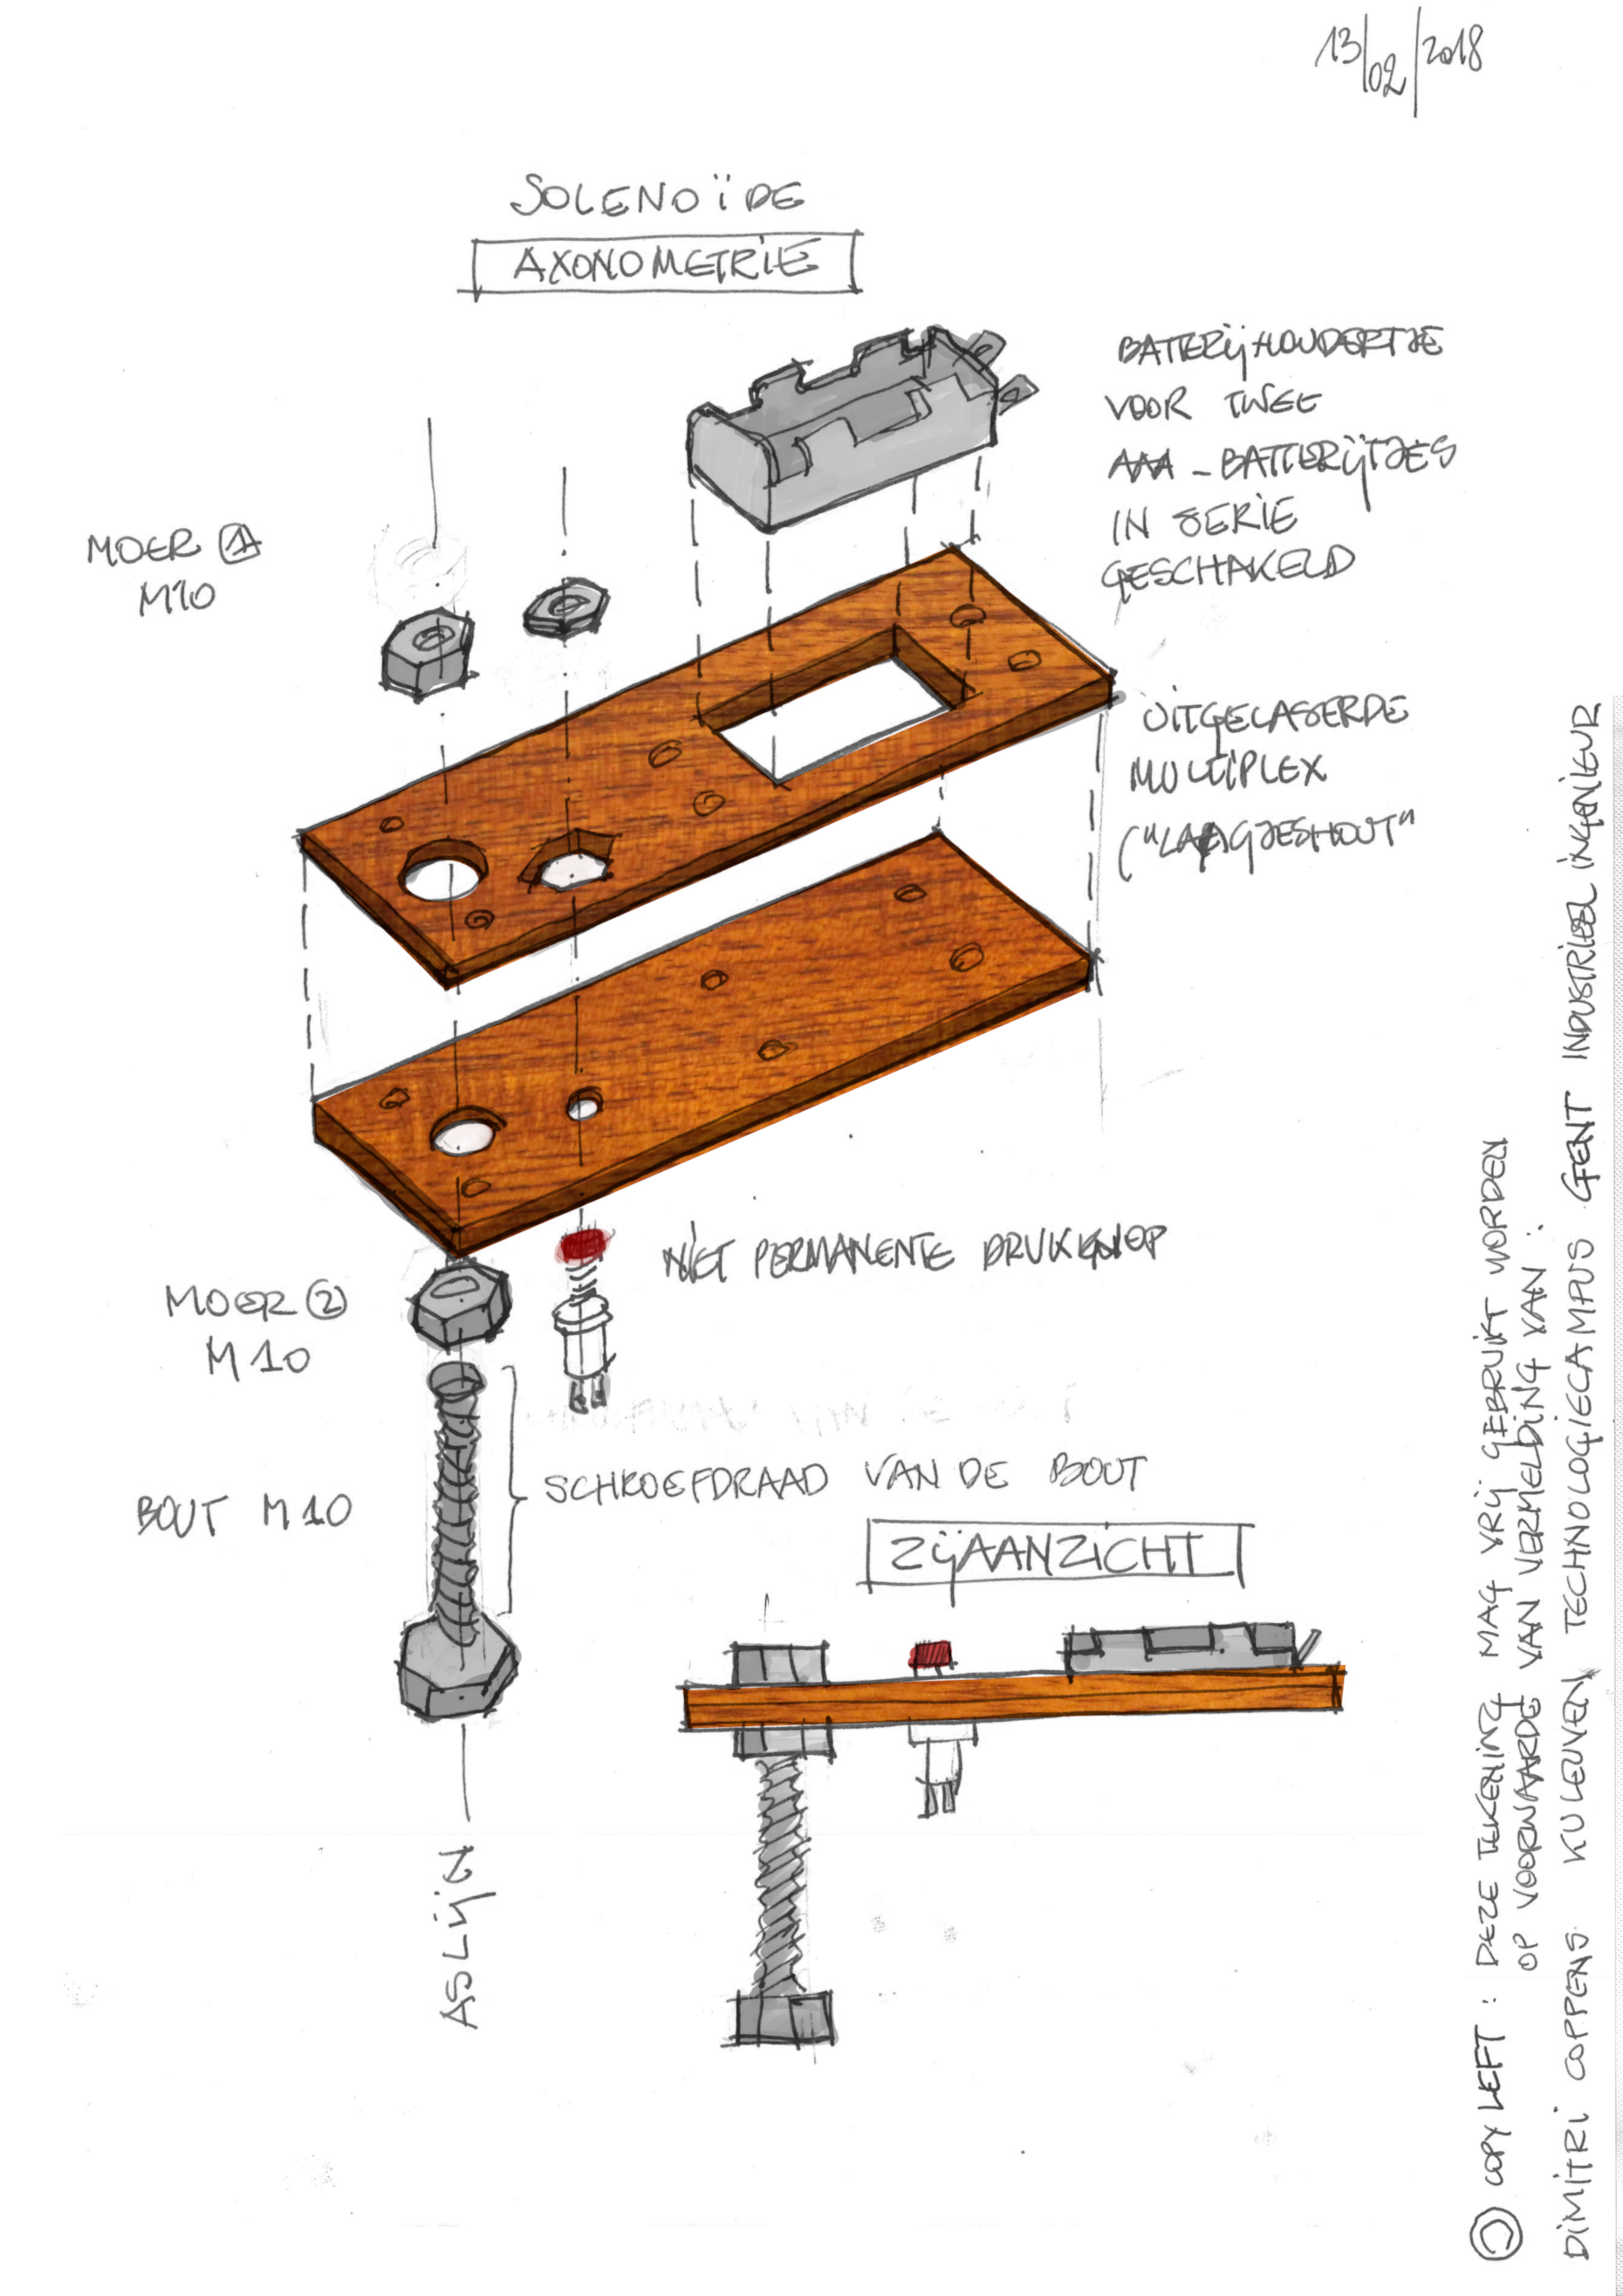 13/02/2018
SOLENOÏDE
AXONOMETRIE
BATTERIJHOUDERTJE
VOOR TWEE
AAA-BATTERIJTJES
IN SERIE
GESCHAKELD
MOER 1
M10
UITGELASERDE
MULTIPLEX
("LAAGJESHOUT"
NIET PERMANENTE DRUKKNOP
MOER 2
M10
BOUT M10
SCHROEFDRAAD VAN DE BOUT
ZIJAANZICHT
ASLIJN
© COPYLEFT : DEZE TEKENING MAG VRIJ GEBRUIKT WORDEN
OP VOORWAARDE VAN VERMELDING VAN :
DIMITRI COPPENS KU LEUVEN TECHNOLOGIECAMPUS GENT INDUSTRIEEL INGENIEUR